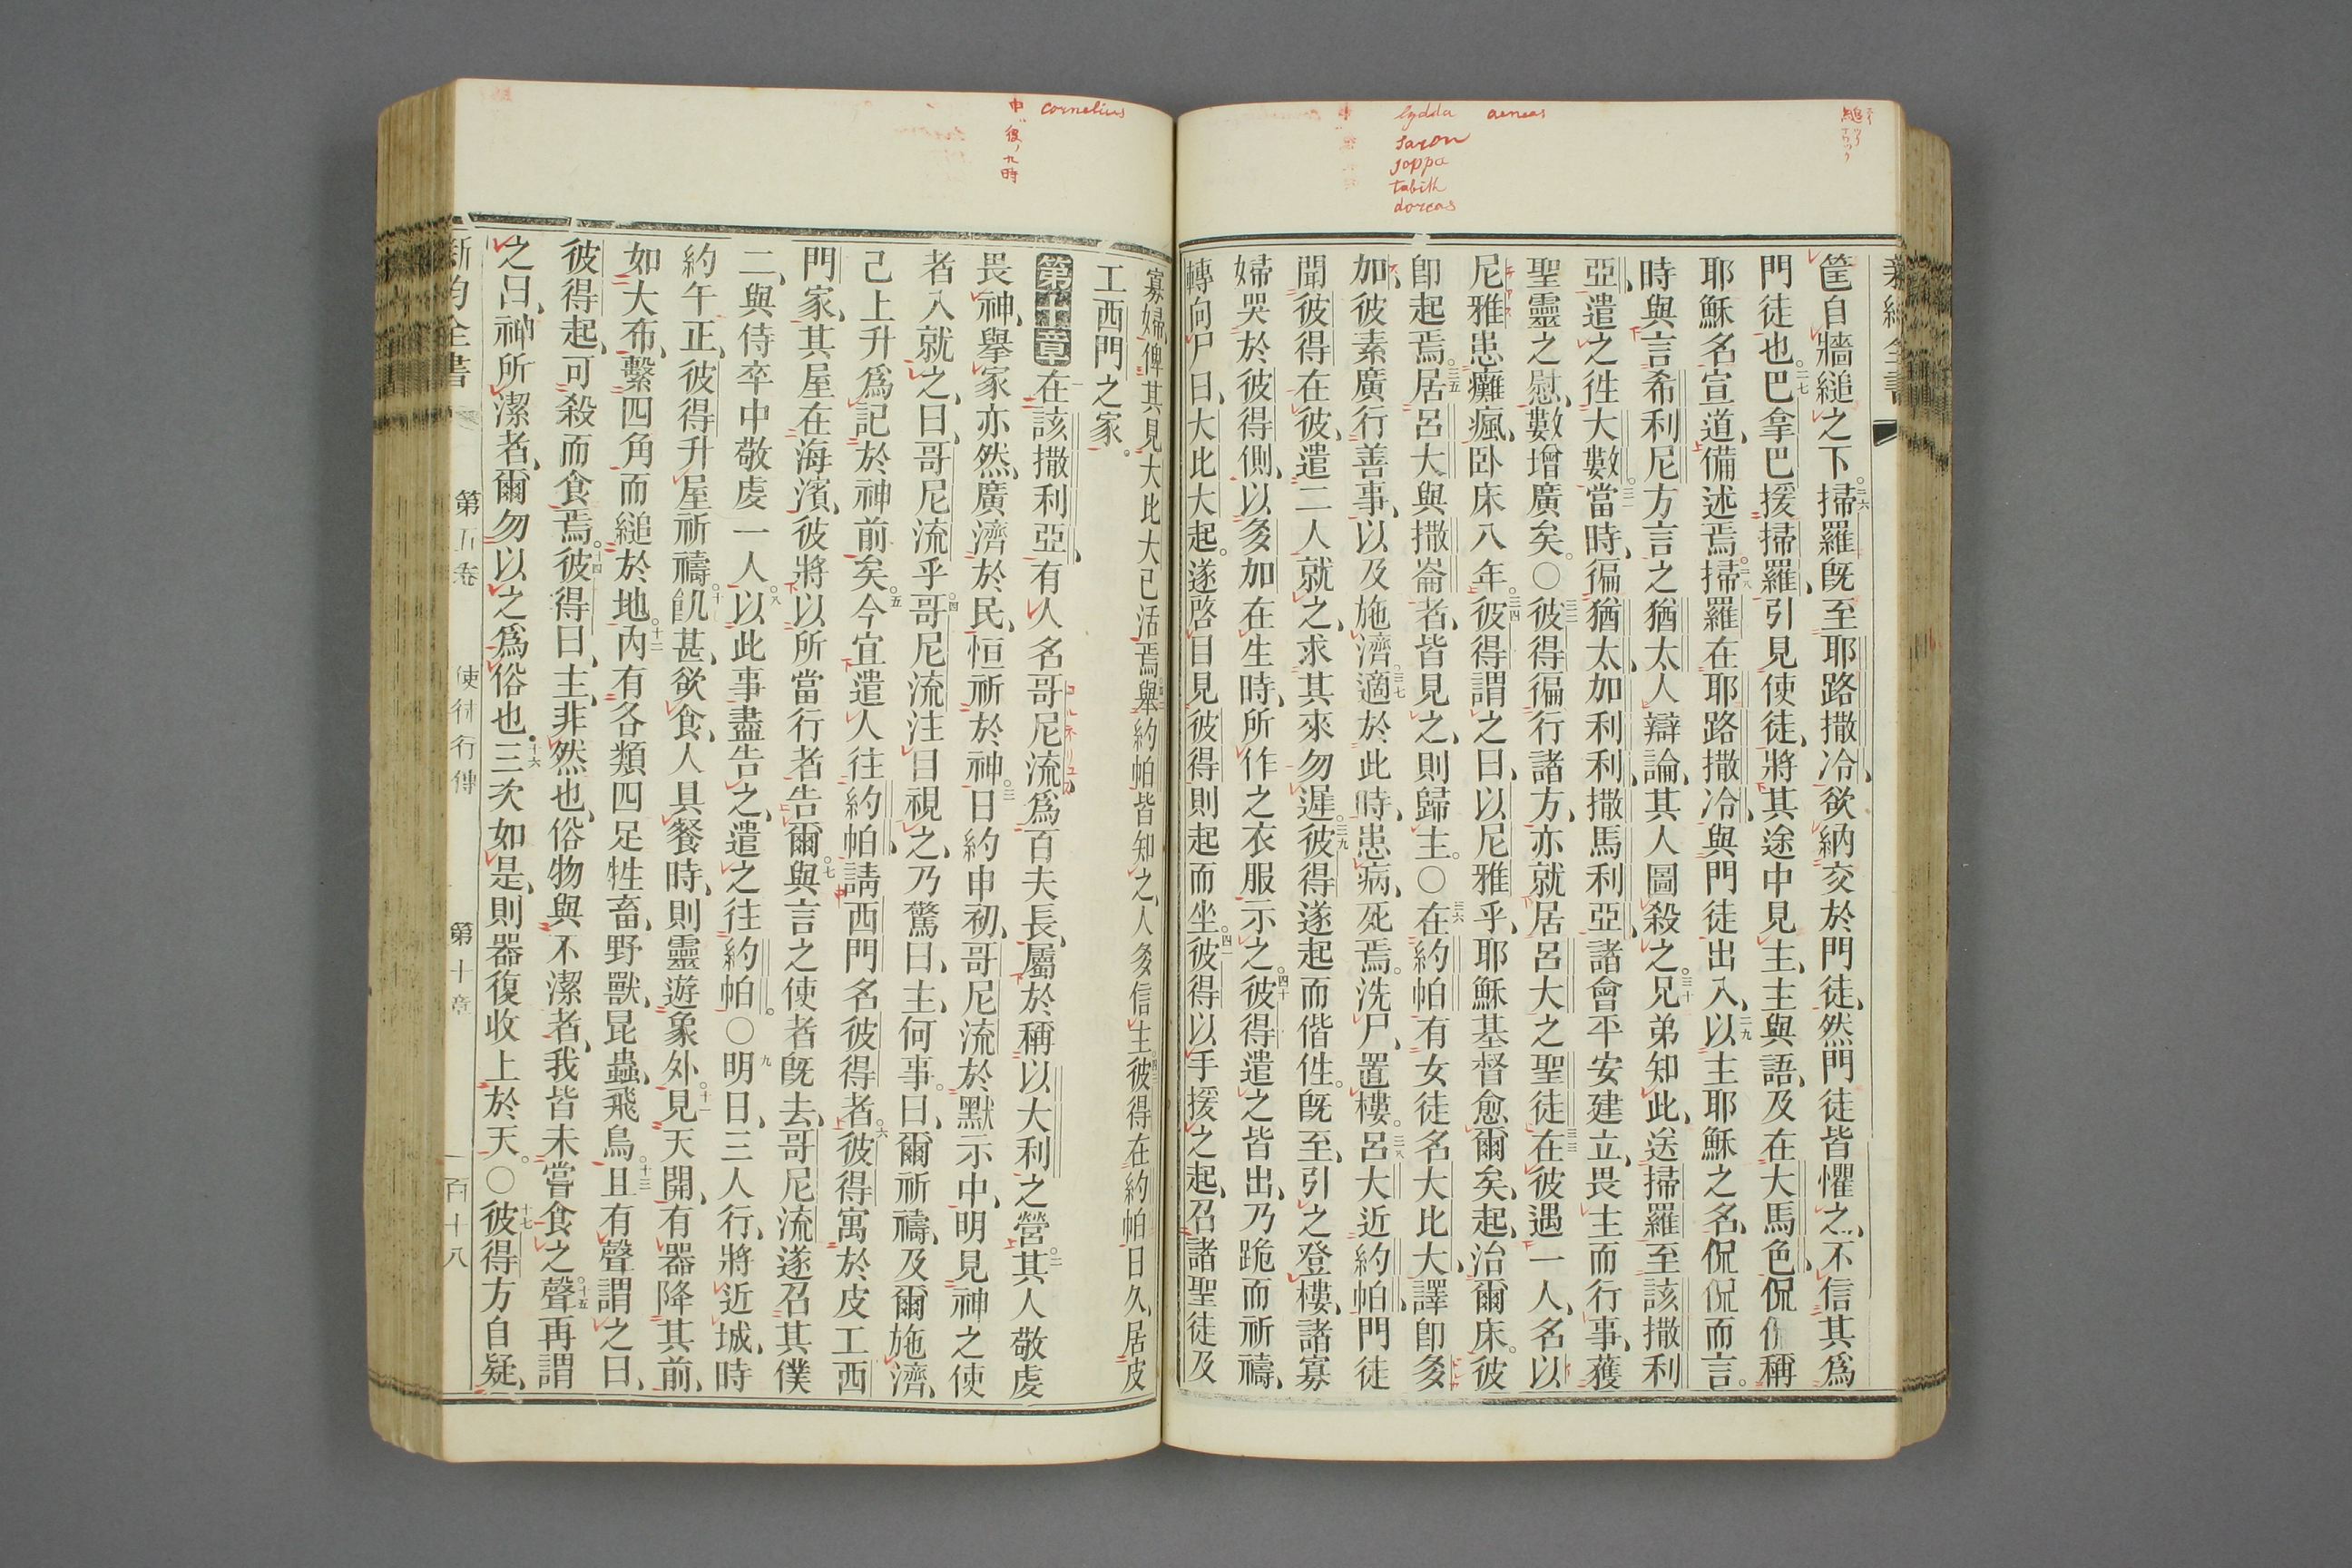 縋
lydda aeneas
saron
joppa
tabith
dorcas
筐自牆縋之下。二六掃羅旣至耶路撒冷、欲納交於門徒、然門徒皆懼之、不信其爲
門徒也。二七巴拿巴援掃羅、引見使徒、將其途中見主、主與語、及在大馬色侃侃稱
耶穌名宣道、備述焉。二八掃羅在耶路撒冷、與門徒出入、二九以主耶穌之名、侃侃而言。
時與言希利尼方言之猶太人辯論、其人圖殺之。三十兄弟知此、送掃羅至該撒利
亞、遣之徃大數。三一當時、徧猶太、加利利、撒馬利亞、諸會平安建立、畏主而行事、獲
聖靈之慰、數增廣矣。〇三二彼得徧行諸方、亦就居呂大之聖徒。三三在彼遇一人、名以
尼雅、患癱瘋、卧床八年。三四彼得謂之曰、以尼雅乎、耶穌基督愈爾矣、起、治爾床。彼
卽起焉。三五居呂大與撒崙者、皆見之、則歸主。〇三六在約帕有女徒名大比大、譯卽多
加、彼素廣行善事、以及施濟。三七適於此時、患病、死焉。洗尸、置樓。三八呂大近約帕、門徒
聞彼得在彼、遣二人就之、求其來勿遲。三九彼得遂起而偕徃。旣至、引之登樓、諸寡
婦哭於彼得側、以多加在生時、所作之衣服示之。四十彼得遣之皆出、乃跪而祈禱、
轉向尸曰、大比大起。遂啓目見彼得、則起而坐。四一彼得以手援之起、召諸聖徒及
cornelius
申 後ノ九時
寡婦、俾其見大比大已活焉。舉約帕皆知之、人多信主。彼得在約帕日久、居皮
工西門之家。
第十章一在該撒利亞、有人名哥尼流、爲百夫長、屬於稱以大利之營。二其人敬虔
畏神、舉家亦然、廣濟於民、恒祈於神。三日約申初、哥尼流於默示中、明見神之使
者入就之、曰、哥尼流乎。四哥尼流注目視之、乃驚曰、主、何事。曰、爾祈禱、及爾施濟、
己上升爲記於神前矣。五今宜遣人往約帕、請西門名彼得者。六彼得寓於皮工西
門家、其屋在海濱、彼將以所當行者告爾。七與言之使者旣去、哥尼流遂召其僕
二、與侍卒中敬虔一人。八以此事盡告之、遣之往約帕。〇九明日、三人行、將近城、時
約午正、彼得升屋祈禱。十飢甚、欲食、人具餐時、則靈遊象外。十一見天開、有器降其前、
如大布、繫四角而縋於地。十二內有各類四足牲畜、野獸、昆蟲、飛鳥。十三且有聲謂之曰、
彼得起、可殺而食焉。十四彼得曰、主、非然也、俗物與不潔者、我皆未嘗食之。十五聲再謂
之曰、神所潔者、爾勿以之爲俗也。十六三次如是、則器復收上於天。〇十七彼得方自疑、
新約全書 第五卷 使徒行傳 第十章 百十八